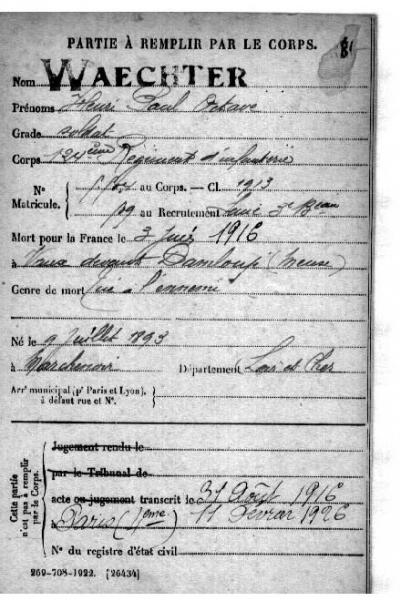 PARTIE À REMPLIR PAR LE CORPS.
Nom WAECHTER
Prénoms Henri Paul Octave
Grade soldat
Corps 124ème Régiment d'infanterie
N° Matricule. au Corps. — Cl. 1913
au Recrutement Seine 3e Beau
Mort pour la France le 3 Juin 1916
à Vaux devant Damloup (Meuse)
Genre de mort Tué à l'ennemi
Né le 9 Juillet 1893
à Marchenoir Département Loir et Cher
Arrt municipal (pr Paris et Lyon), à défaut rue et N°.
Cette partie n'est pas à remplir par le Corps.
Jugement rendu le
par le Tribunal de
acte ou jugement transcrit le 31 Août 1916
à Paris 11 Février 1926
N° du registre d'état civil
269-708-1922. [26434]